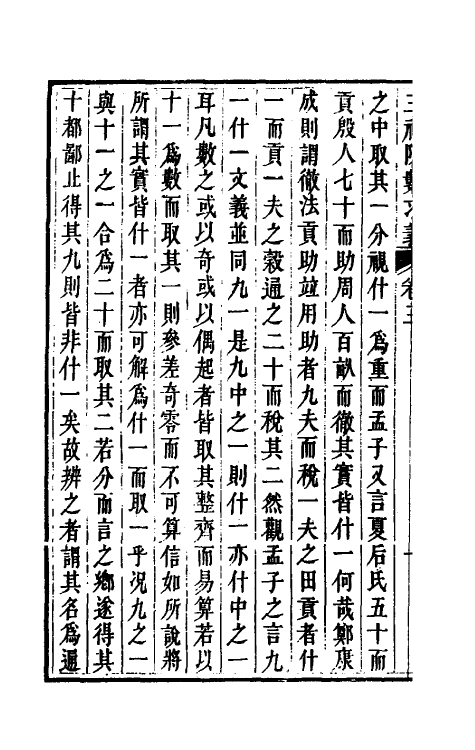 三礼陳數求義 卷三
之中取其一分視什一為重而孟子又言夏后氏五十而
貢殷人七十而助周人百畝而徹其實皆什一何哉鄭康
成則謂徹法貢助竝用助者九夫而稅一夫之田貢者什
一而貢一夫之穀通之二十而稅其二然觀孟子之言九
一什一文義並同九一是九中之一則什一亦什中之一
耳凡數之或以奇或以偶起者皆取其整齊而易算若以
十一爲數而取其一則參差奇零而不可算信如所說將
所謂其實皆什一者亦可解爲什一而取一乎況九之一
與十一之一合爲二十而取其二若分而言之鄉遂得其
十都鄙止得其九則皆非什一矣故辨之者謂其名爲通